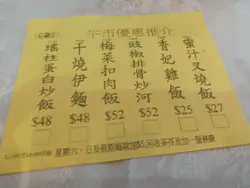 午市優惠推介
蜜汁叉燒飯
$27
香妃雞飯
$25
豉椒排骨炒河
$52
梅菜扣肉飯
$52
干燒伊麵
$48
瑤柱蛋白炒飯
$48